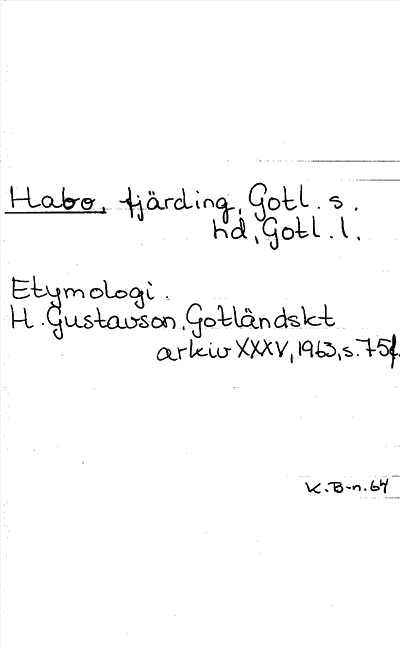 Habo, fjärding, Gotl. s.
hd, Gotl. l.
Etymologi.
H. Gustavson, Gotländskt
arkiv XXXV, 1963, s. 75f.
K. B-n. 64